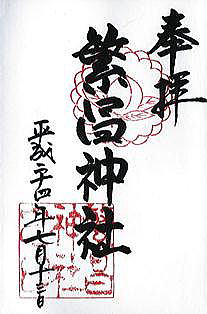 奉拝
繁昌神社
平成二十四年七月十三日